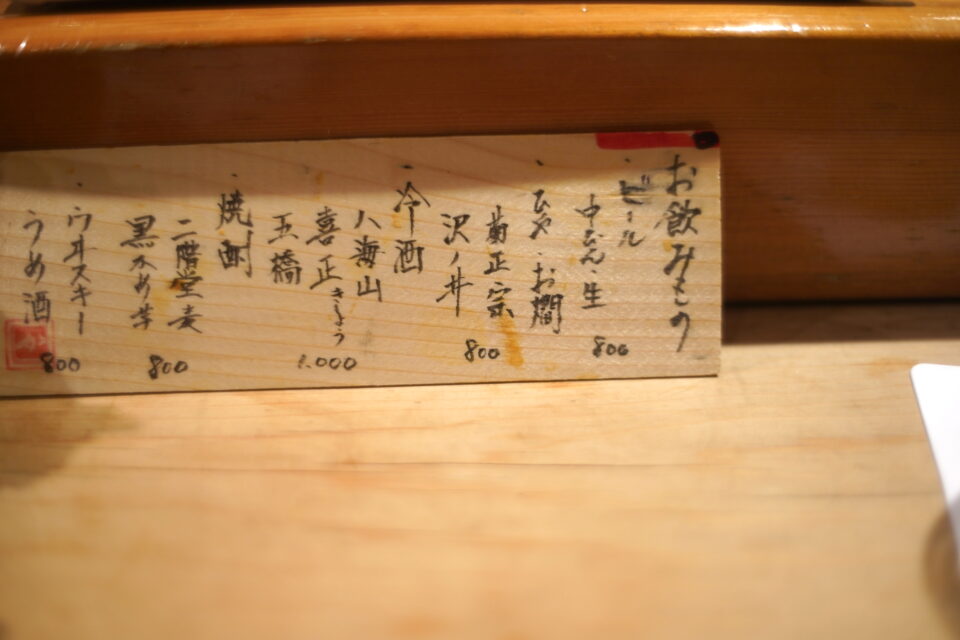 お飲みもの
・ビール
中びん・生
800
・ひや・お燗
菊正宗
沢ノ井
800
・冷酒
八海山
喜正きしょう
五橋
1.000
・焼酎
二階堂麦
黒かめ芋
800
・ウヰスキー
うめ酒
800